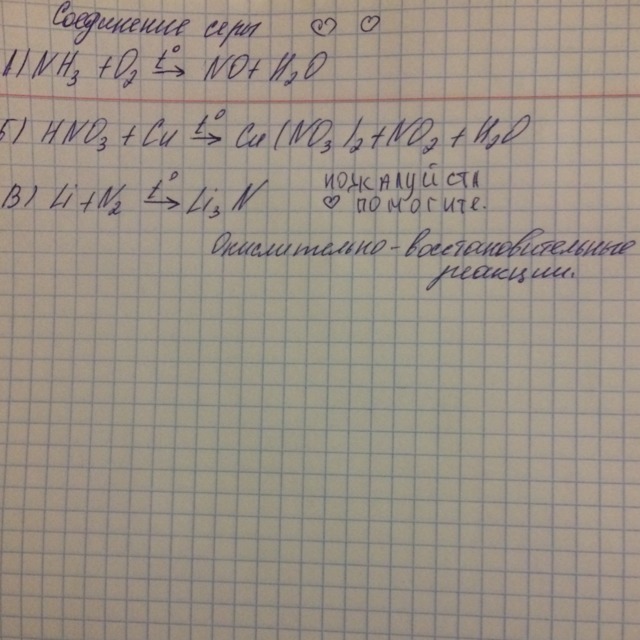 Соединение серы ♡ ♡
А) NH₃ + O₂ t°→ NO + H₂O
Б) HNO₃ + Cu t°→ Cu(NO₃)₂ + NO₂ + H₂O
В) Li + N₂ t°→ Li₃N
пожалуйста
♡ помогите.
Окислительно-восстановительные
реакции.